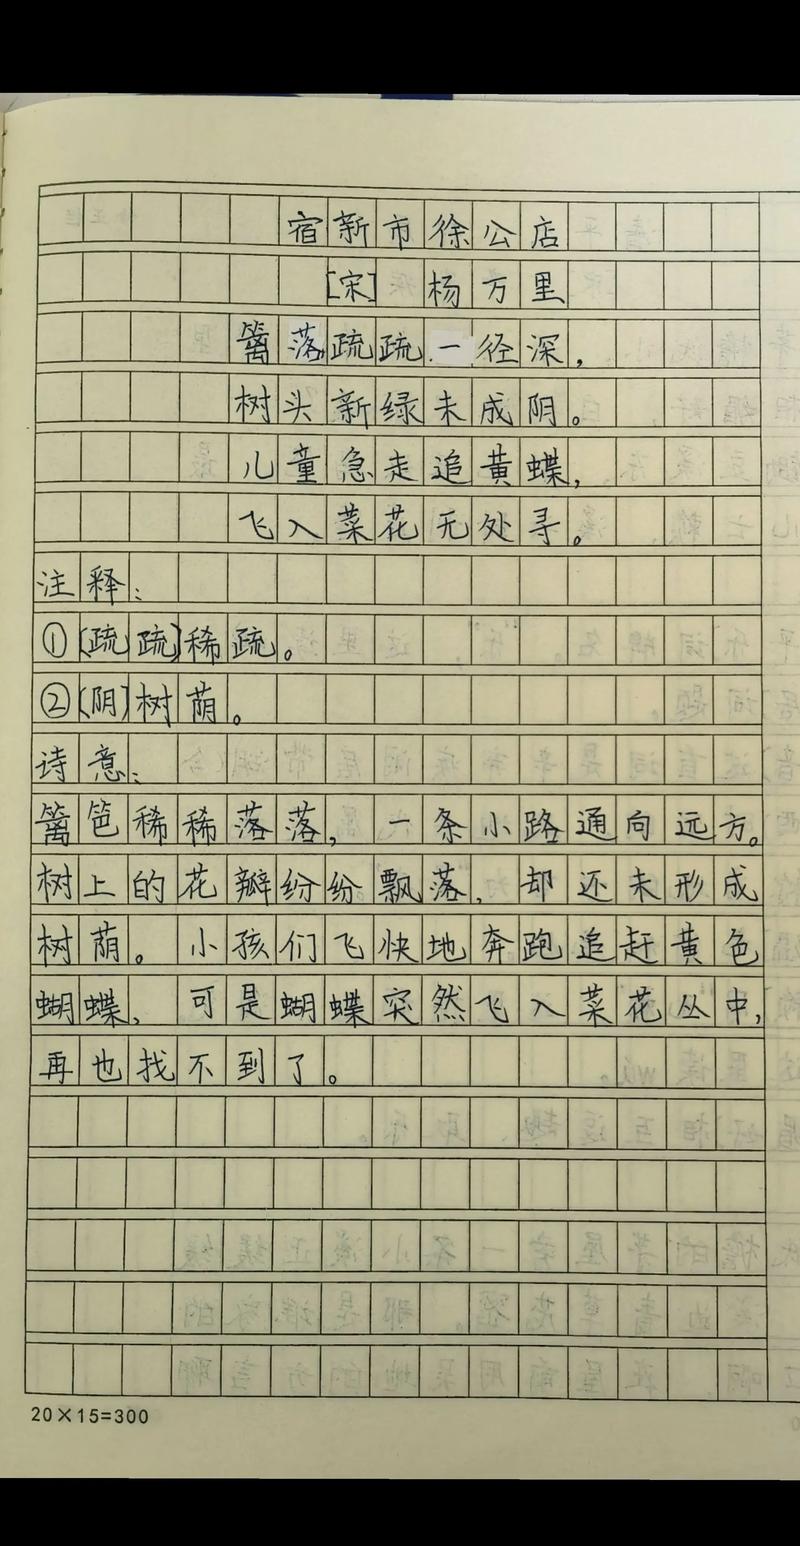 宿新市徐公店
[宋] 杨万里
篱落疏疏一径深,
树头新绿未成阴。
儿童急走追黄蝶,
飞入菜花无处寻。
注释:
①[疏疏]稀疏。
②[阴]树荫。
诗意:
篱笆稀稀落落,一条小路通向远方。
树上的花瓣纷纷飘落,却还未形成
树荫。小孩们飞快地奔跑追赶黄色
蝴蝶、可是蝴蝶突然飞入菜花丛中,
再也找不到了。
20×15=300